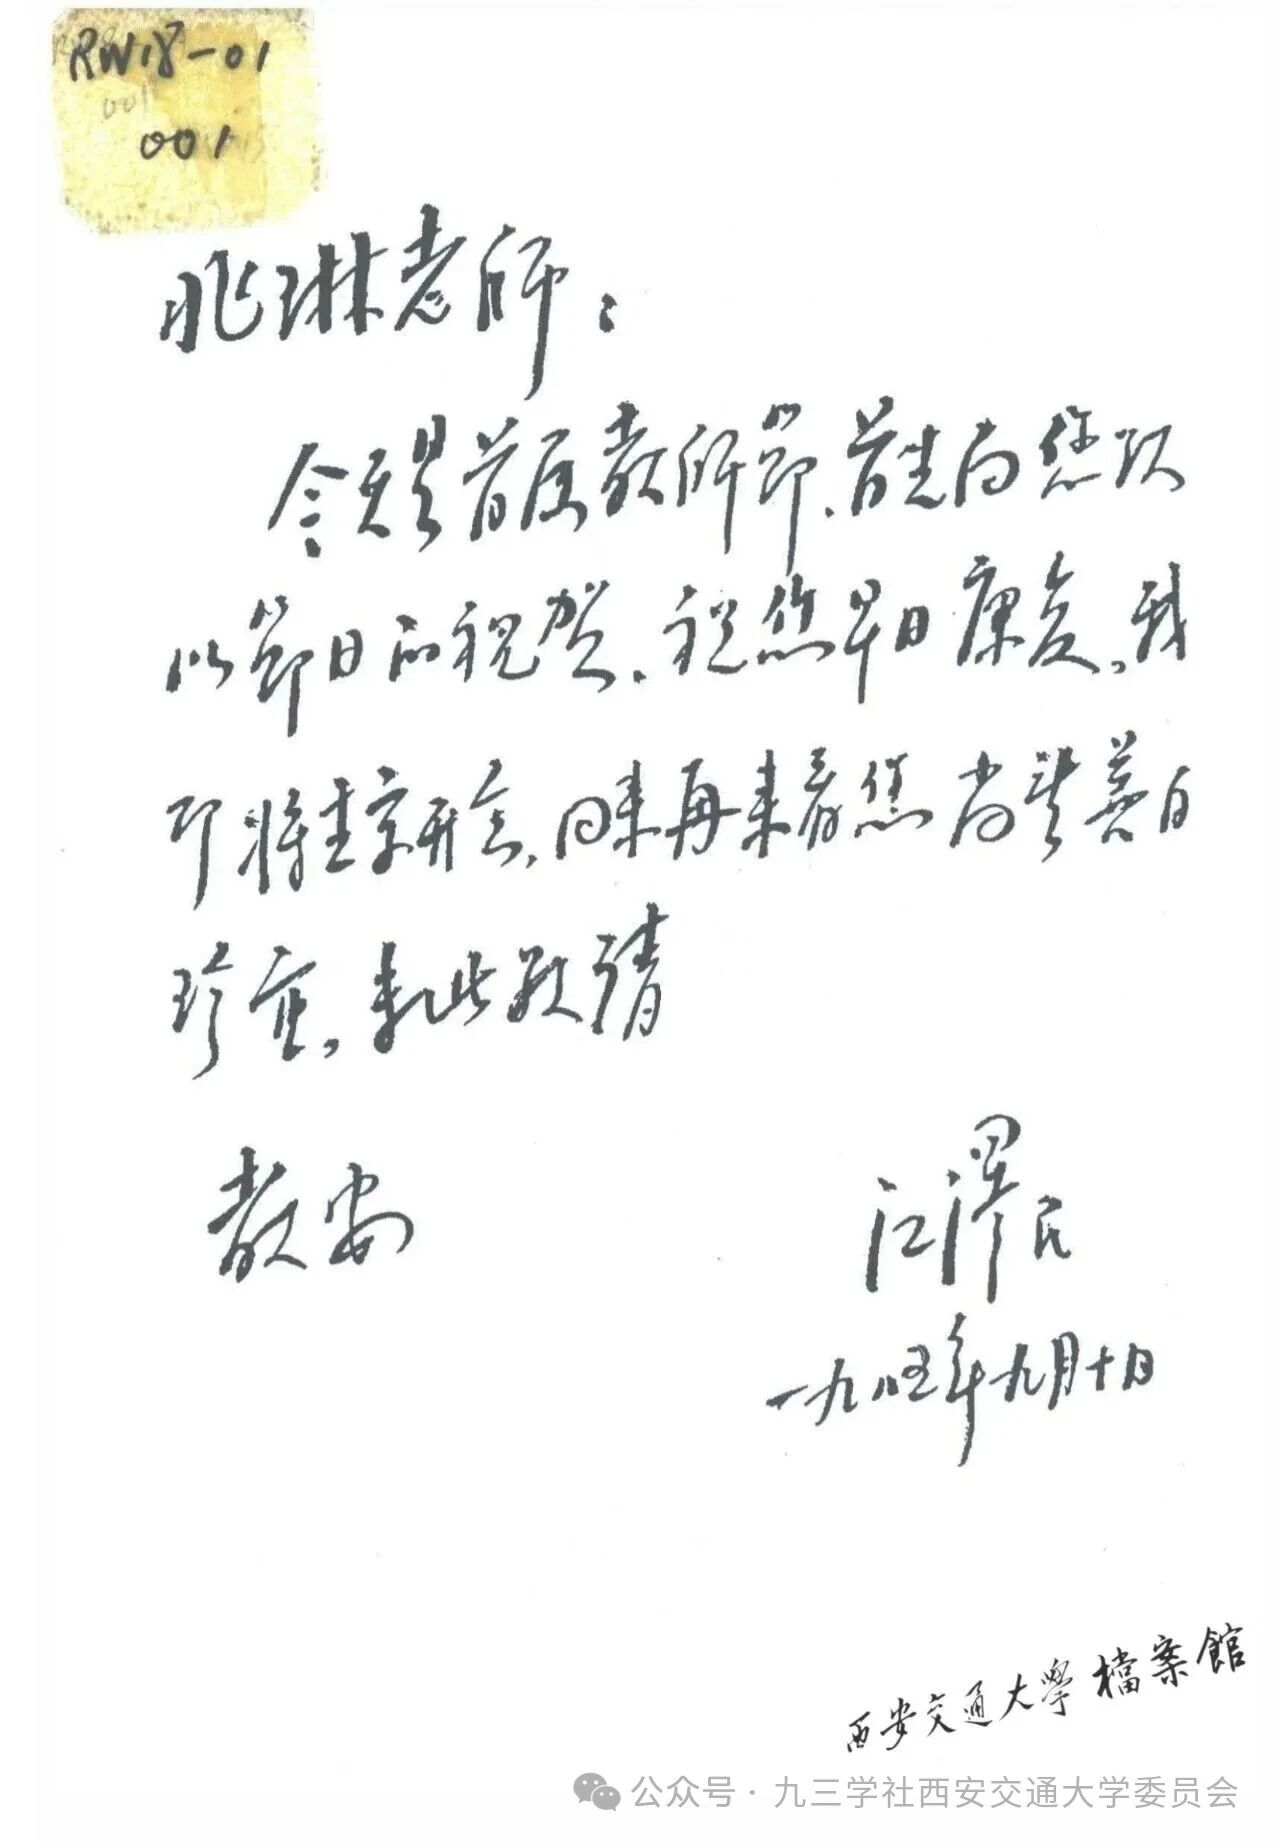 RW18-01
001
001
兆琳老师：
今天是首届教师節，首先向您致
以節日的祝贺，祝您早日康复，我
即将去京开会，回来再来看您 尚望善自
珍重，耑此敬请
教安
江泽民
一九八五年九月十日
西安交通大學檔案館
公众号·九三学社西安交通大学委员会